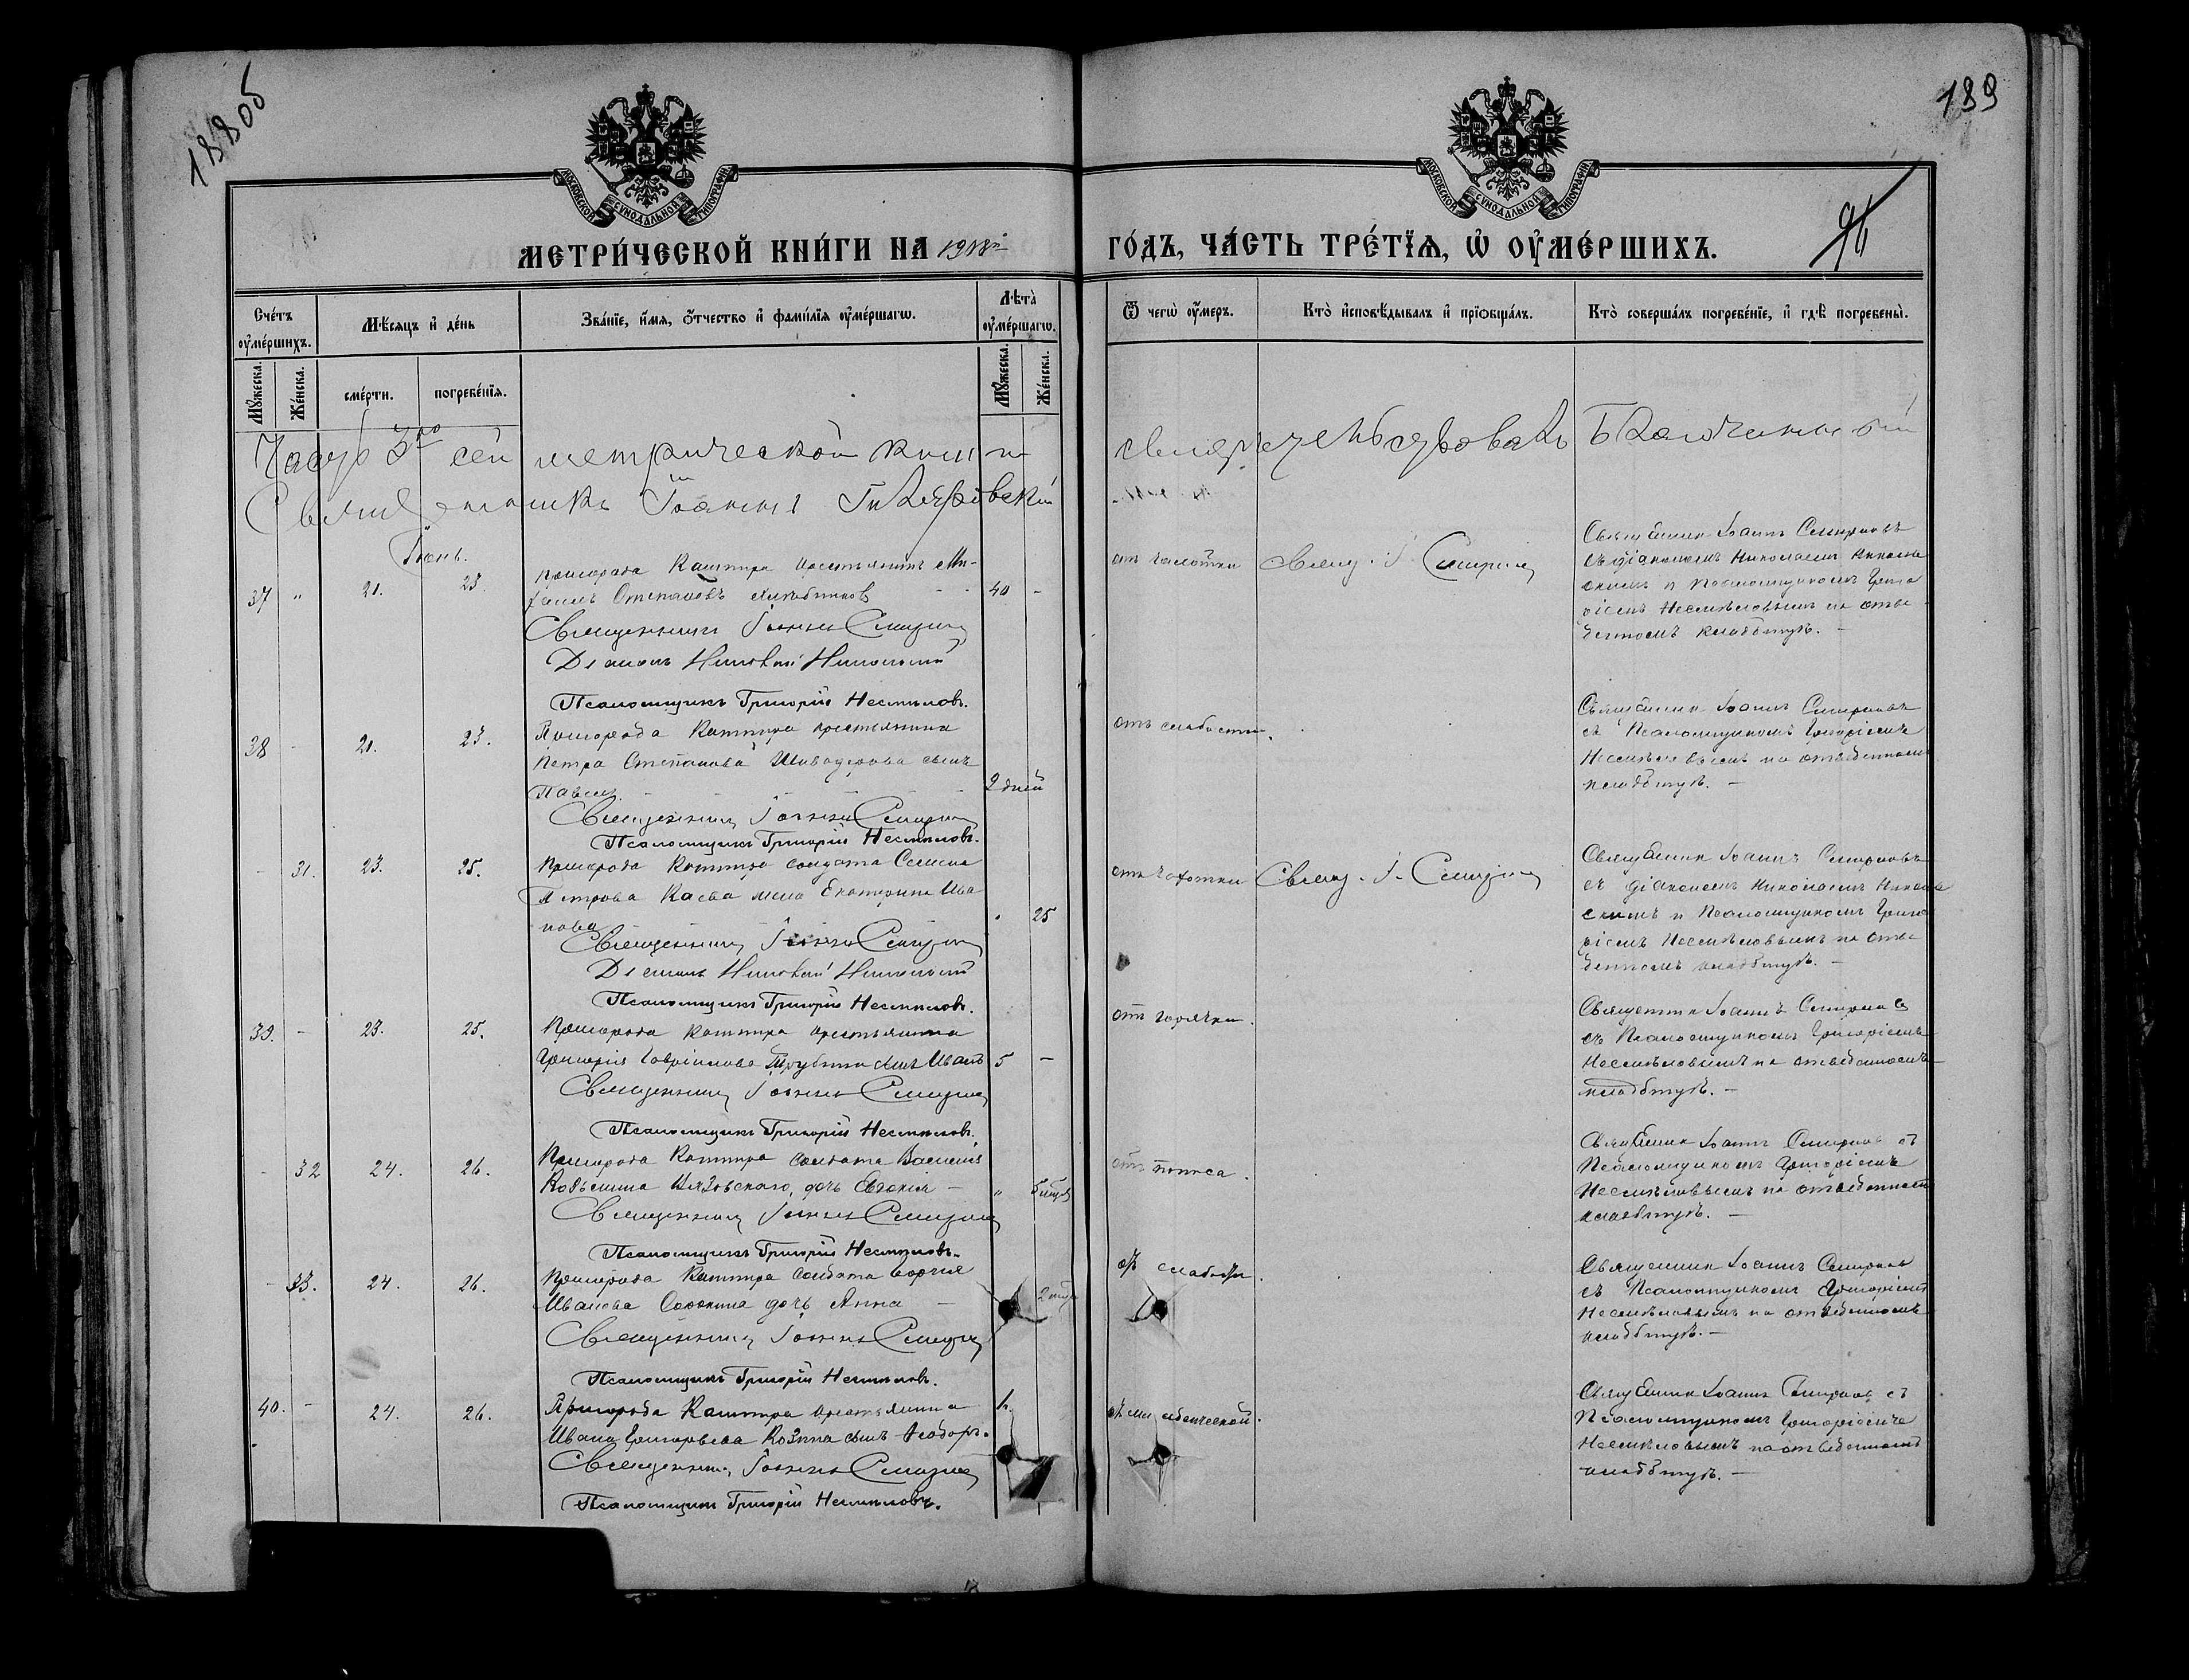 188об
189
МОСКОВСКОЙ СѴНОДАЛЬНОЙ ТИПОГРАФІИ
МОСКОВСКОЙ СѴНОДАЛЬНОЙ ТИПОГРАФІИ
96
МЕТРИ́ЧЕСКОЙ КНИ́ГИ НА 1918й
ГО́ДЪ, ЧА́СТЬ ТРЕ́ТЇѦ, Ѡ҆ ОУ҆МЕ́РШИХЪ.
Сче́тъ оу҆ме́ршихъ.
Мѣ́сѧцъ и҆ де́нь
Зва́нїе, и҆́мѧ, ѻ҆́тчество и҆ фами́лїѧ оу҆ме́ршагѡ.
Лѣ́та̀ оу҆ме́ршагѡ.
Ѿ чегѡ̀ оу҆́меръ.
Кто̀ и҆сповѣ́дывалъ и҆ прїѡбща́лъ.
Кто̀ соверша́лъ погребе́нїе, и҆ гдѣ̀ погребены̀.
Мꙋ́жеска.
Же́нска.
сме́рти.
погребе́нїѧ.
Мꙋ́жеска.
Же́нска.
Часть 3ю сей метрической книги свидетельствовалъ Благочинный
Священникъ Іоаннъ
Іюнь.
37 " 21. 23. Пригорода крестьянинъ Ми-
хаилъ Степановъ 40 -
Священникъ Іоаннъ Смирновъ
Діаконъ Николай Никольскій
Псаломщикъ Григорій Несмѣловъ.
отъ чахотки
Свящ. І. Смирновъ
Священникъ Іоаннъ Смирновъ
съ діакономъ Николаемъ Николь
скимъ и Псаломщикомъ Григо
ріемъ Несмѣловымъ на отве
денномъ кладбищѣ. -
38 - 21. 23. Пригорода крестьянина
Петра Степанова сынъ
Павелъ. 2 дней
Священникъ Іоаннъ Смирновъ
Псаломщикъ Григорій Несмѣловъ.
отъ слабости.
Священникъ Іоаннъ Смирновъ
съ Псаломщикомъ Григоріемъ
Несмѣловымъ на отведенномъ
кладбищѣ. -
- 31. 23. 25. Пригорода солдата Семена
Петрова жена Екатерина Ива
нова 25
Священникъ Іоаннъ Смирновъ
Діаконъ Николай Никольскій
Псаломщикъ Григорій Несмѣловъ.
отъ чахотки
Свящ. І. Смирновъ
Священникъ Іоаннъ Смирновъ
съ діакономъ Николаемъ Николь
скимъ и Псаломщикомъ Григо
ріемъ Несмѣловымъ на отве
денномъ кладбищѣ. -
39. - 23. 25. Пригорода крестьянина
Григорія Гавріилова сынъ Иванъ 5 -
Священникъ Іоаннъ Смирновъ
Псаломщикъ Григорій Несмѣловъ.
отъ горячки.
Священникъ Іоаннъ Смирновъ
съ Псаломщикомъ Григоріемъ
Несмѣловымъ на отведенномъ
кладбищѣ. -
- 32 24. 26. Пригорода солдата
дочь Евдокія -
Священникъ Іоаннъ Смирновъ
Псаломщикъ Григорій Несмѣловъ.
отъ поноса.
Священникъ Іоаннъ Смирновъ съ
Псаломщикомъ Григоріемъ
Несмѣловымъ на отведенномъ
кладбищѣ. -
- 33. 24. 26. Пригорода солдата
Иванова дочь Анна -
Священникъ Іоаннъ Смирновъ
Псаломщикъ Григорій Несмѣловъ.
отъ слабости.
Священникъ Іоаннъ Смирновъ
съ Псаломщикомъ Григоріемъ
Несмѣловымъ на отведенномъ
кладбищѣ. -
40. - 24. 26. Пригорода крестьянина
Ивана Григорьева сынъ Ѳеодоръ.
Священникъ Іоаннъ Смирновъ
Псаломщикъ Григорій Несмѣловъ.
Священникъ Іоаннъ Смирновъ съ
Псаломщикомъ Григоріемъ
Несмѣловымъ на отведенномъ
кладбищѣ. -